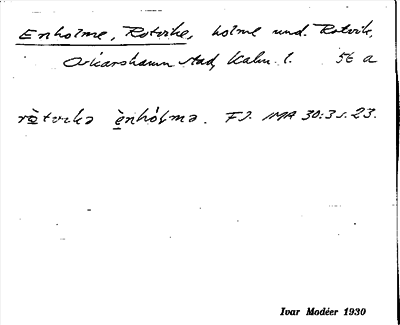 Enholme, Rotvike, holme und. Rotvik,
Oskarshamn stad, Kalm. l. 56 a
rø̀tvika ènhólmə. FJ. MA 30:31.23.
Ivar Modéer 1930